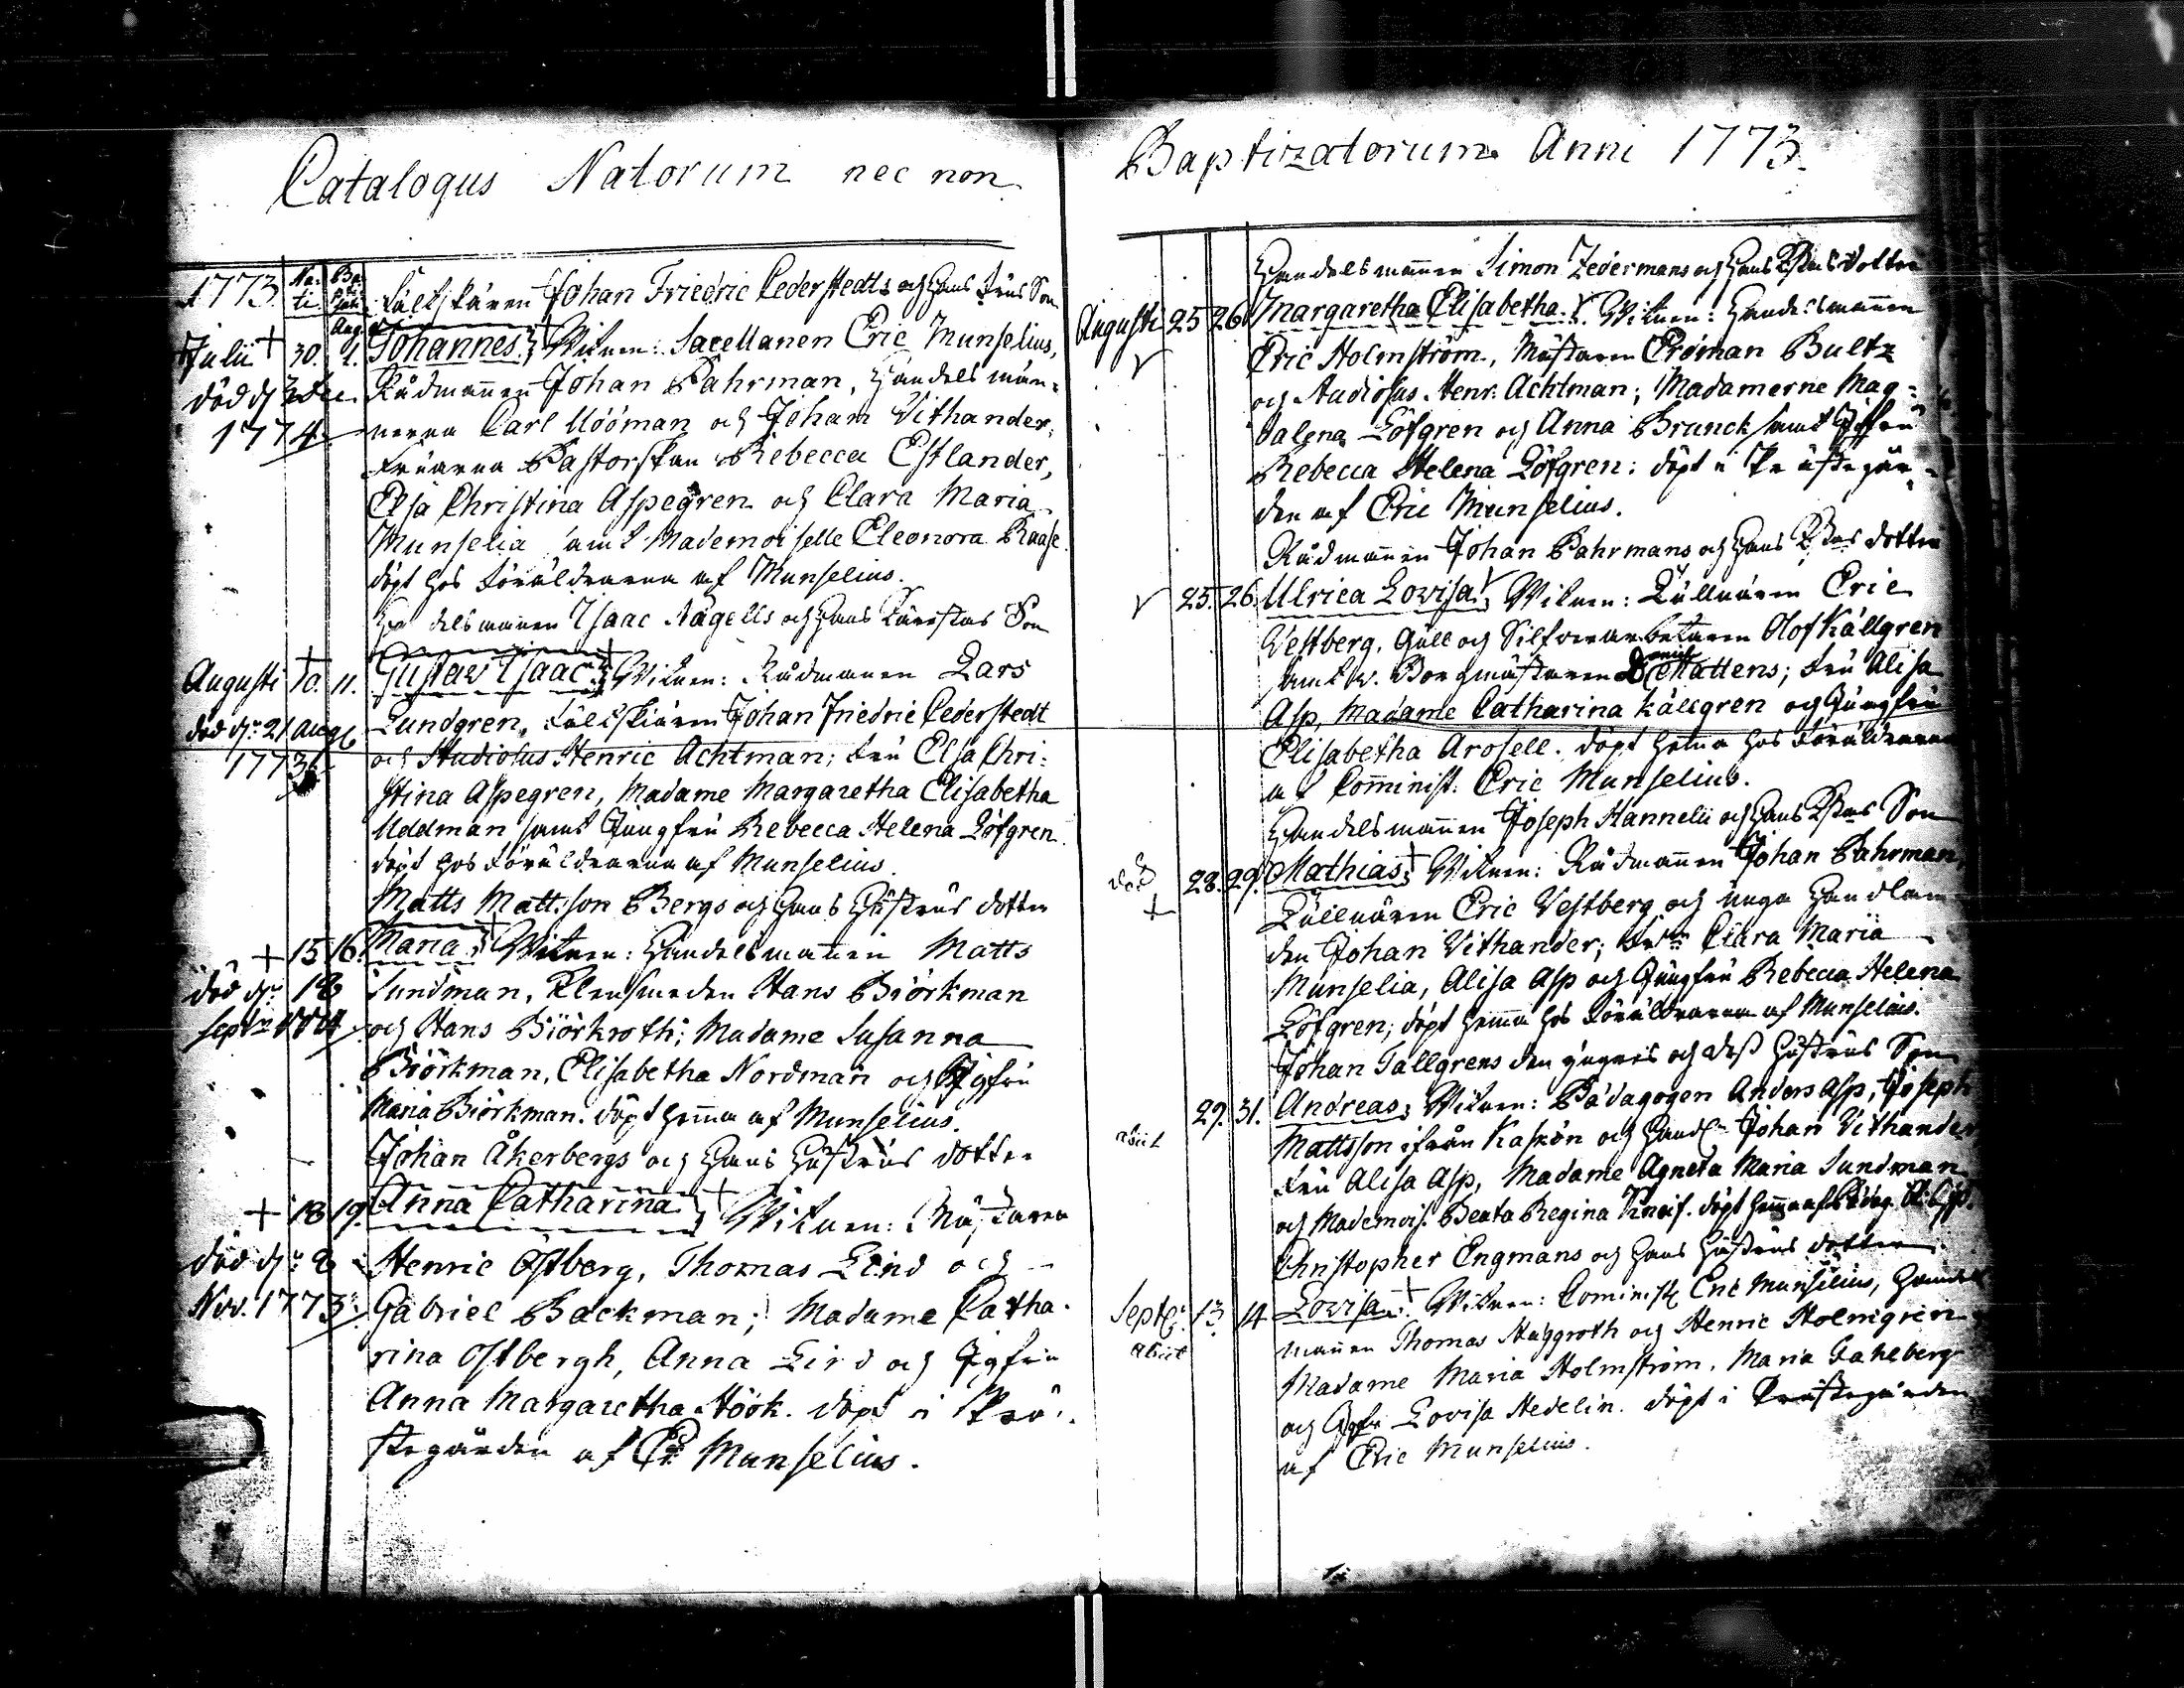 Catalogus Natorum nec non
1773. Na- ti. Ba- pti- zati. Fältskären Johan Friedric Cederstedts och hans Frus Son
Aug.
Julii + 30. 1. Johannes; Vitnen: Sacellanen Eric Munselius,
död d 3 Dec. Rådmannen Johan Bahrman, Handelsmän-
1774. nerna Carl Mööman och Johan Vithander,
Fruarna Pastorskan Rebecca Estlander,
Elsa Christina Aspegren och Clara Maria
Munselia samt Mademoiselle Eleonora Raase.
döpt hos Föräldrarna af Munselius.
Handelsmannen Isaac Nägells och hans Kärestas Son
Augusti + 10. 11. Gustaw Isaac; Vitnen: Rådmannen Lars
död d: 21 Aug. Lundgren, Fältskiären Johan Friedric Cederstedt
1773. och Studiosus Henric Achtman; Fru Elsa Chri-
stina Aspegren, Madame Margaretha Elisabetha
Uddman samt Jungfru Rebecca Helena Löfgren.
döpt hos Föräldrarna af Munselius.
Matts Mattsson Bergs och hans Hustrus dotter
+ 15 16. Maria; Vitnen: Handelsmannen Matts
död d: 18 Sundman, Klensmeden Hans Biörkman
Sept. 1774. och Hans Biörkroth; Madame Susanna
Biörkman, Elisabetha Nordman och Jgfru
Maria Biörkman. döpt hemma af Munselius.
Johan Åkerbergs och hans Hustrus dotter
+ 18 19. Anna Catharina; Vitnen: Mästaren
död d: 8 Henric Östberg, Thomas Lind och
Nov. 1773. Gabriel Backman; Madame Catha-
rina Ostbergh, Anna Lind och Jgfru
Anna Margaretha Höök. döpt i Prä-
stegården af Er. Munselius.
Baptizatorum Anni 1773.
Handelsmannen Simon Zedermans och hans K:tas dotter
Augusti 25 26 Margaretha Elisabetha. Vitnen: Handelsmannen
Eric Holmström, Mästaren Erdman Bultz
och Studiosus Henr: Achtman; Madamerne Mag-
dalena Löfgren och Anna Brunck samt Jgfru
Rebecca Helena Löfgren; döpt i Prästegår-
den af Eric Munselius.
Rådmannen Johan Bahrmans och hans K:tas dotter
25. 26. Ulrica Lovisa; Vitnen: Tullnären Eric
Vestberg, Gull och Silfverarbetaren Olof Källgren
samt v. Borgmästaren Mattens; Fru Alisa
Asp, Madame Catharina Källgren och Jungfru
Elisabetha Arosell. döpt hemma hos Föräldrarna
af Comminist: Eric Munselius.
Handelsmannen Joseph Hannelii och hans K:tas Son
död + 28. 29. Mathias; Vitnen: Rådmannen Johan Bahrman,
Tullnären Eric Vestberg och unga Handlan-
den Johan Vithander; Clara Maria
Munselia, Alisa Asp och Jungfru Rebecca Helena
Löfgren; döpt hemma hos Föräldrarna af Munselius.
Johan Tallgrens den yngres och dess Hustrus Son
29. 31. Andreas; Vitnen: Pædagogen Anders Asp, Joseph
abiit Mattsson ifrån Kaskön och Handl. Johan Vithander
Fru Alisa Asp, Madame Agneta Maria Sundman
och Mademois. Beata Regina Kneif. döpt hemma af Pædag. Asp.
Christopher Engmans och hans Hustrus dotter
Septbr. 13. 14 Lovisa; Vitnen: Cominist Eric Munselius, Handels-
abiit mannen Thomas Haggroth och Henric Holmgren
Madame Maria Holmström, Maria Gahlberg
och Jgfr Lovisa Hedelin. döpt i Prästegården
af Eric Munselius.